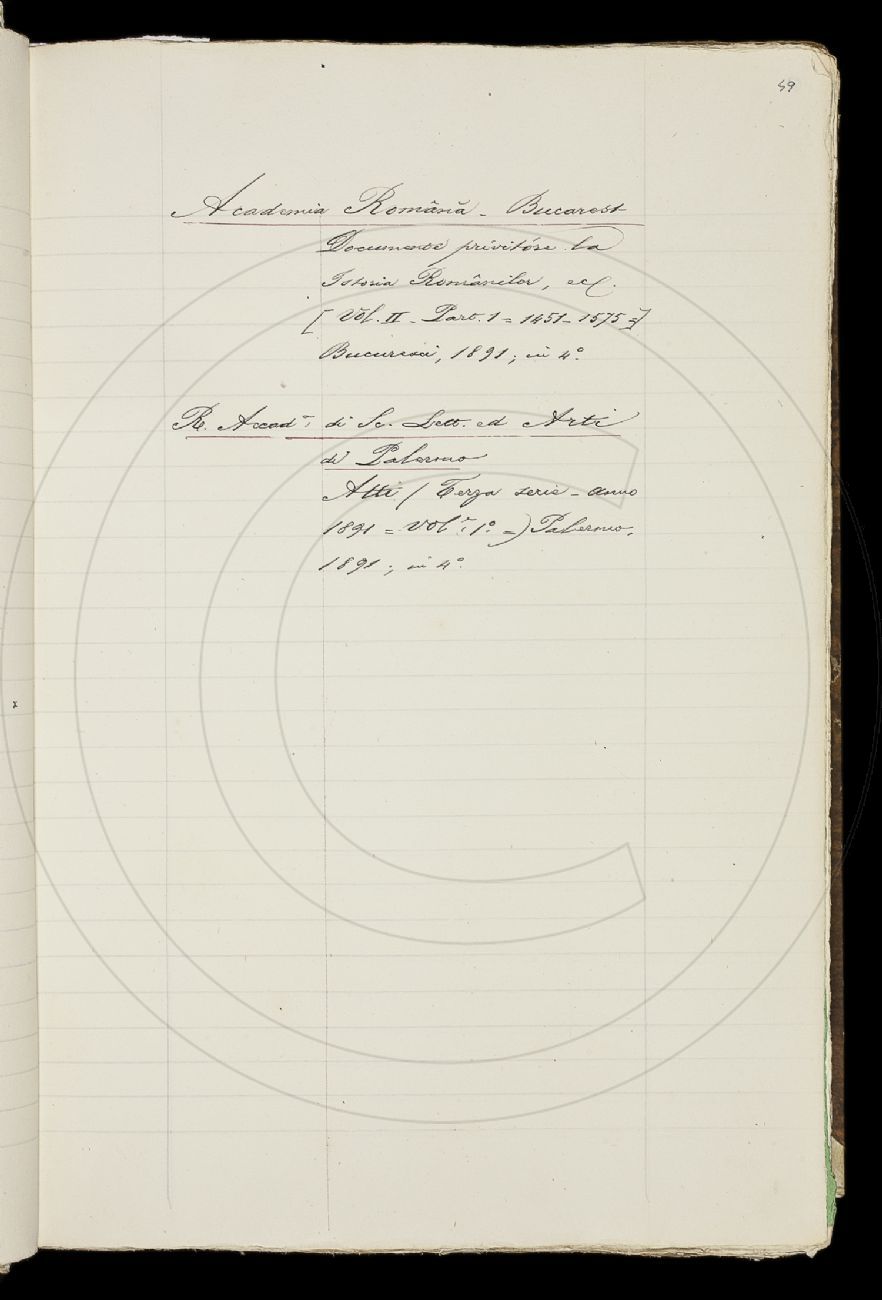 49
Academia Română - Bucarest
Documente privitóre la
Istoria Românilor, ecc.
[Vol. II - Part. 1 = 1451-1575 =]
Bucuresci, 1891; in 4°.
R. Accad.ª di Sc. Lett. ed Arti
di Palermo
Atti (Terza serie - anno
1891 = Vol.e 1° =) Palermo,
1891; in 4°.